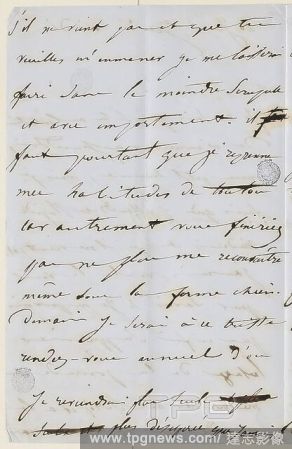 s'il ne vient pas et que tu
veuilles m'emmener je me laisserai
faire sans le moindre scrupule
et avec emportement. il
faut pourtant que je reprenne
mes habitudes de toutou
car autrement vous finiriez
par ne plus me reconnaître
même sous la forme chien.
Demain je serai à ce triste
rendez-vous annuel d'où
je reviendrai plus seul
plus
TPG
www.tpgnews.com/達志影像